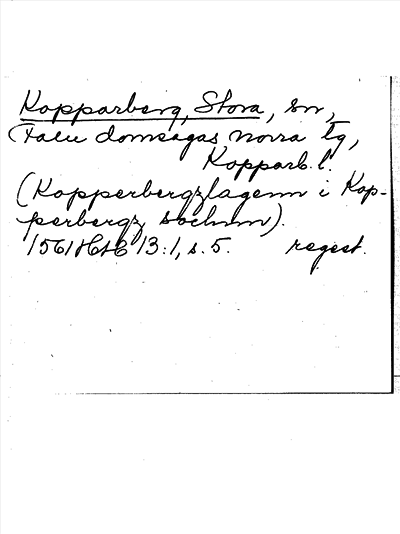 Kopparberg, Stora, sn,
Falu domsagas norra tg,
Kopparb. l.
(Kopperbergzlagenn i Kop-
perbergz sochnn).
1561 HH 13:1, s. 5. regest.